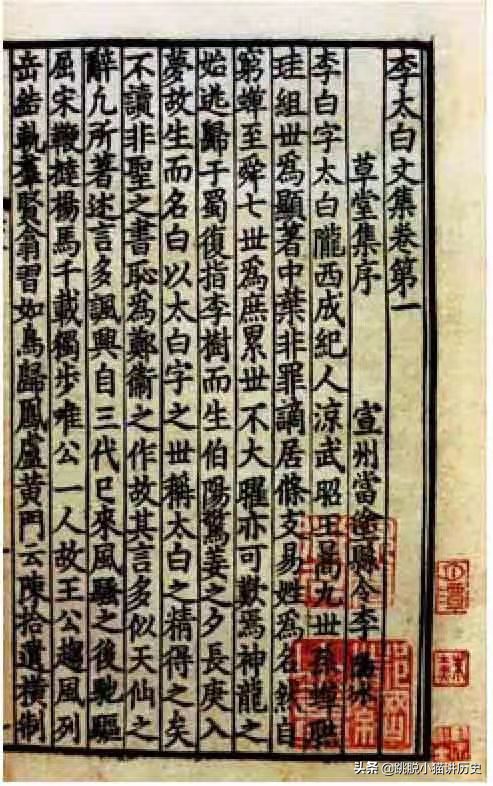 李太白文集卷第一
草堂集序 宣州當塗縣令李陽冰
李白字太白隴西成紀人涼武昭王暠九世孫蟬聯
珪組世爲顯著中葉非罪謫居條支易姓爲名然自
窮蟬至舜七世爲庶累世不大曜亦可歎焉神龍之
始逃歸于蜀復指李樹而生伯陽驚姜之夕長庚入
夢故生而名白以太白字之世稱太白之精得之矣
不讀非聖之書恥爲鄭衞之作故其言多似天仙之
辭凡所著述言多諷興自三代已來風騷之後馳驅
屈宋鞭撻揚馬千載獨步唯公一人故王公趨風列
岳結軌羣賢翕習如鳥歸鳳盧黃門云陳拾遺橫制
头条 @跳脱小猫讲历史